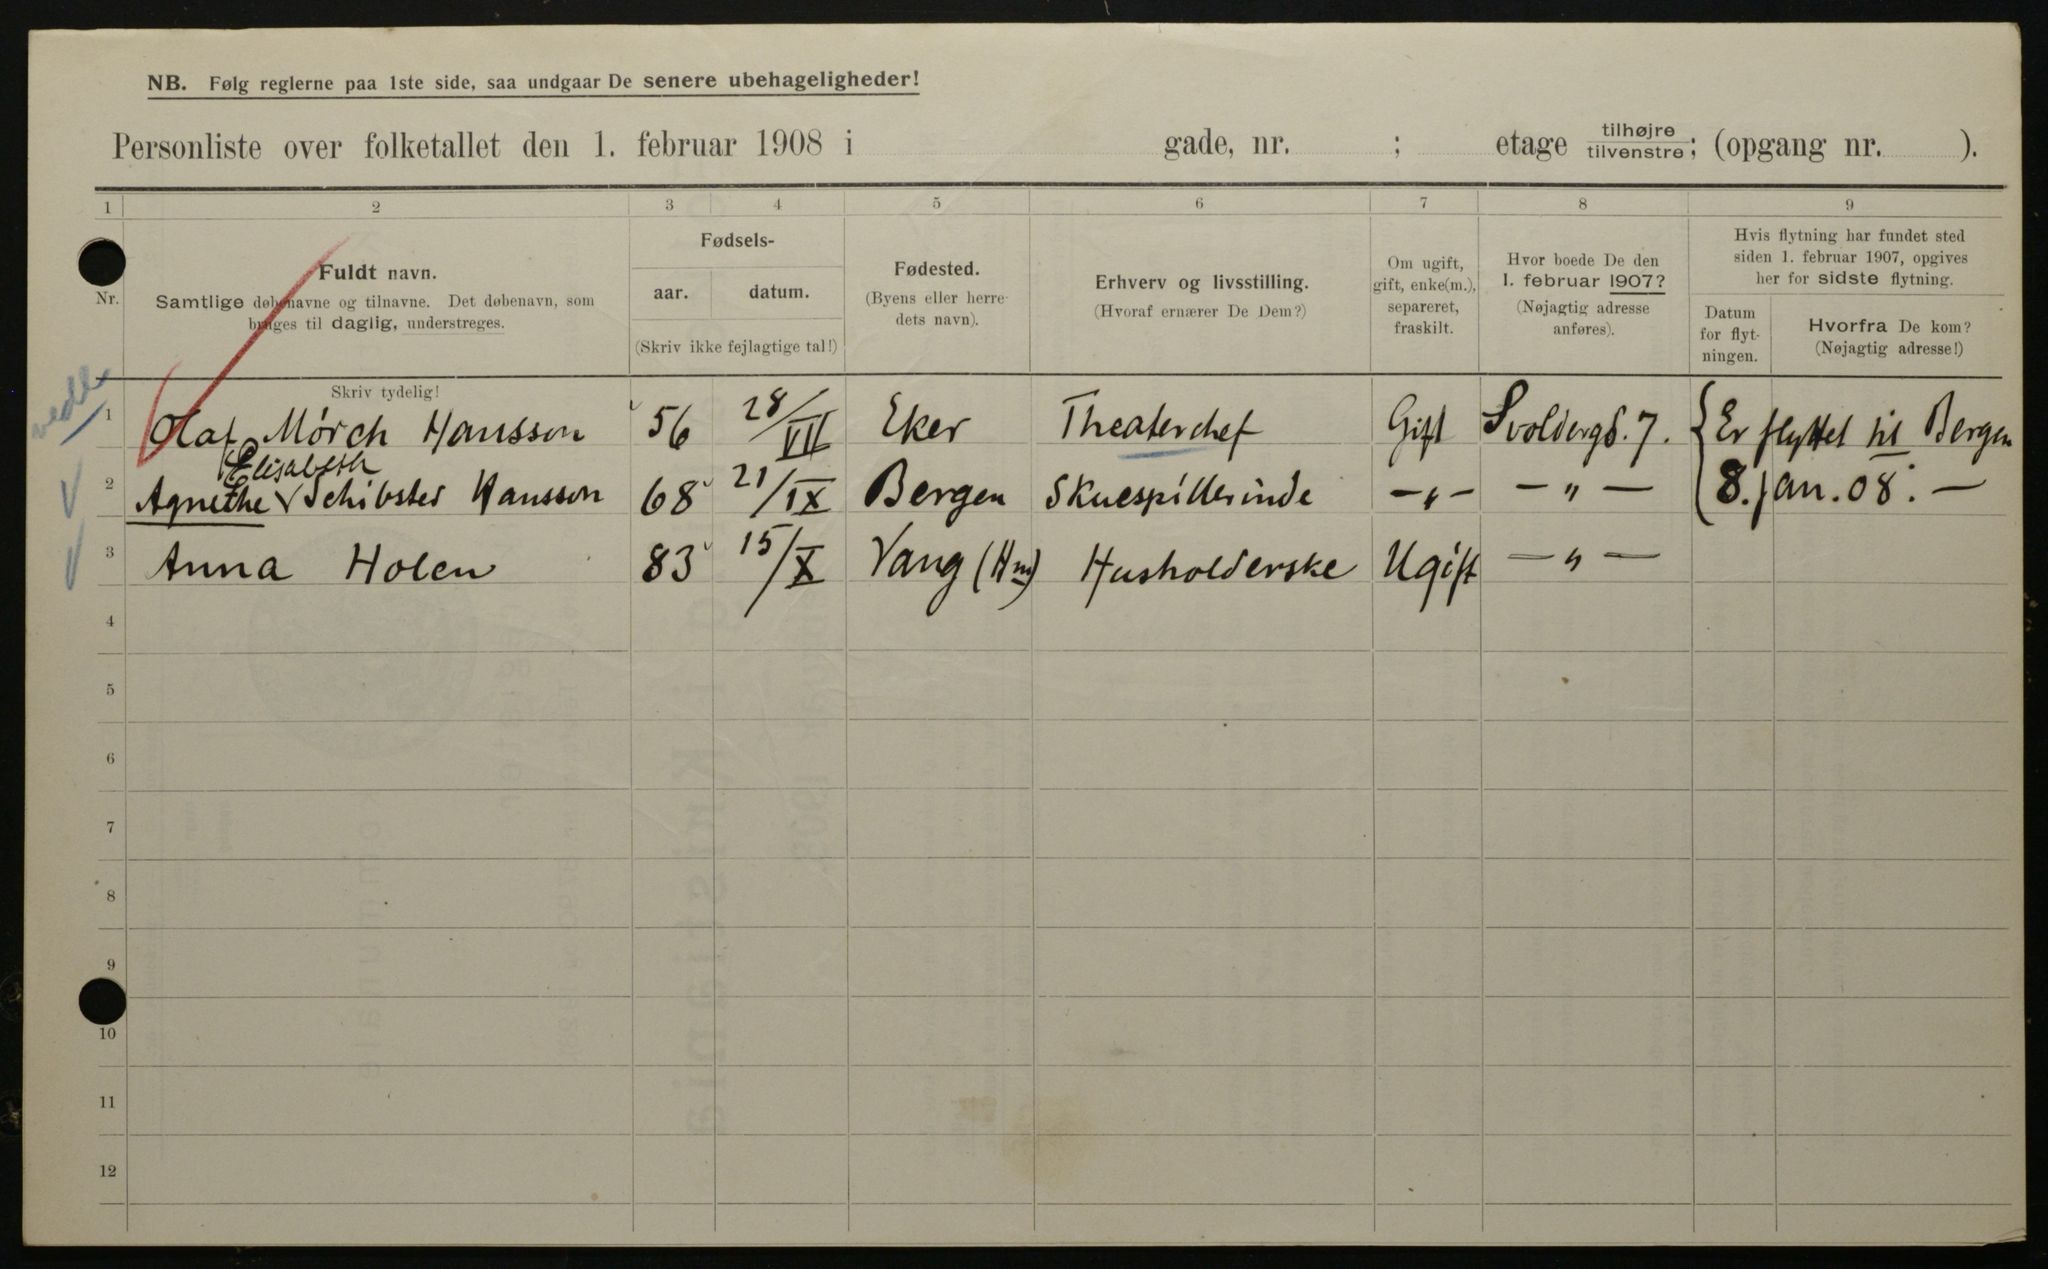 NB. Følg reglerne paa 1ste side, saa undgaar De senere ubehageligheder!
Personliste over folketallet den 1. februar 1908 i gade, nr. ; etage tilhøjre tilvenstre; (opgang nr. ).
1 2 3 4 5 6 7 8 9
Nr.
Fuldt navn.
Samtlige døbenavne og tilnavne. Det døbenavn, som
bruges til daglig, understreges.
Skriv tydelig!
Fødsels-
aar. datum.
(Skriv ikke fejlagtige tal!)
Fødested.
(Byens eller herre-
dets navn).
Erhverv og livsstilling.
(Hvoraf ernærer De Dem?)
Om ugift,
gift, enke(m.),
separeret,
fraskilt.
Hvor boede De den
1. februar 1907?
(Nøjagtig adresse
anføres).
Hvis flytning har fundet sted
siden 1. februar 1907, opgives
her for sidste flytning.
Datum
for flyt-
ningen.
Hvorfra De kom?
(Nøjagtig adresse!)
1 Olaf Mørch Hansson 56 28/VII Eker Theaterchef Gift Svoldergd. 7. Er flyttet til Bergen
Elisabeth
2 Agnethe Schibsted Hansson 68 21/IX Bergen Skuespillerinde -〃- -〃- 8. jan. 08. —
3 Anna Holen 83 15/X Vang (Hm) Husholderske Ugift -〃-
4
5
6
7
8
9
10
11
12